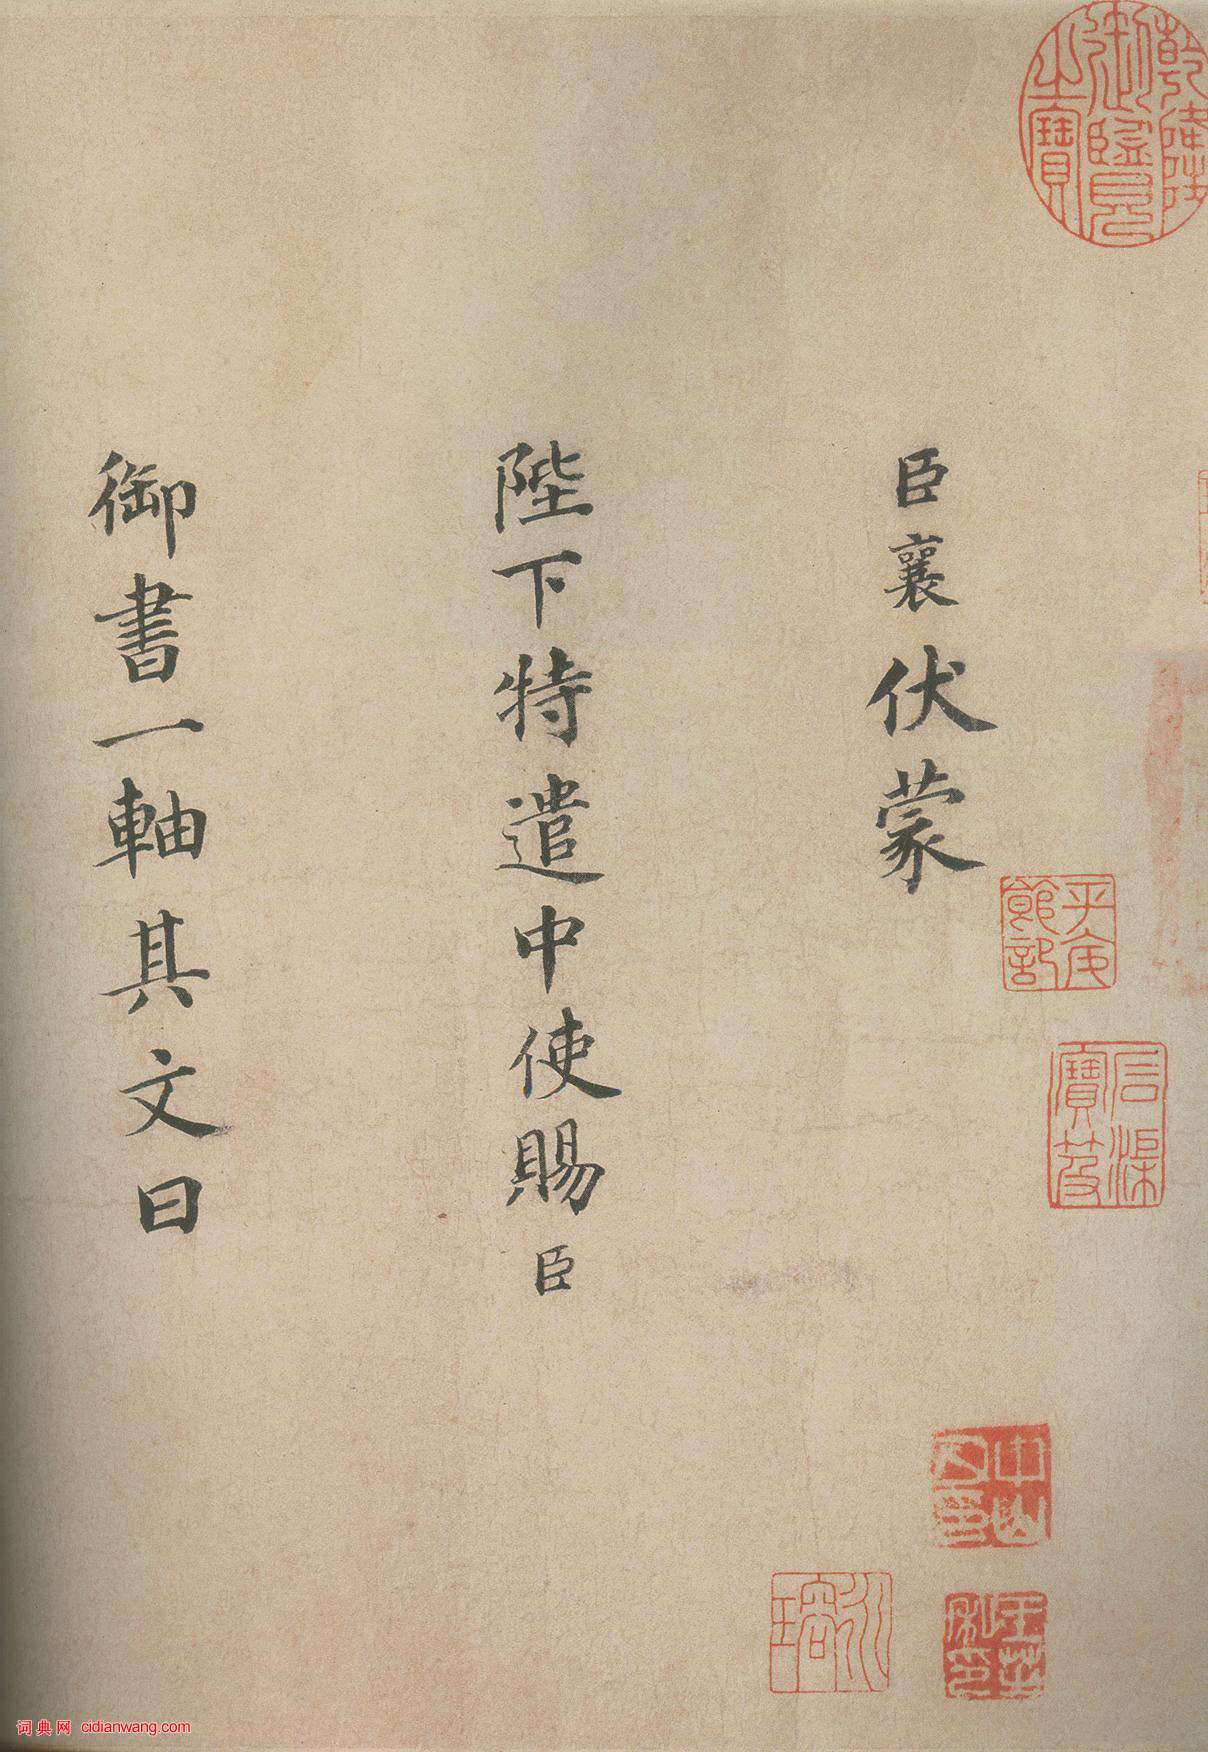 臣襄伏蒙
陛下特遣中使賜臣
御書一軸其文曰
乾隆御覽之寶
石渠寶笈
中山
词典网 cidianwang.com